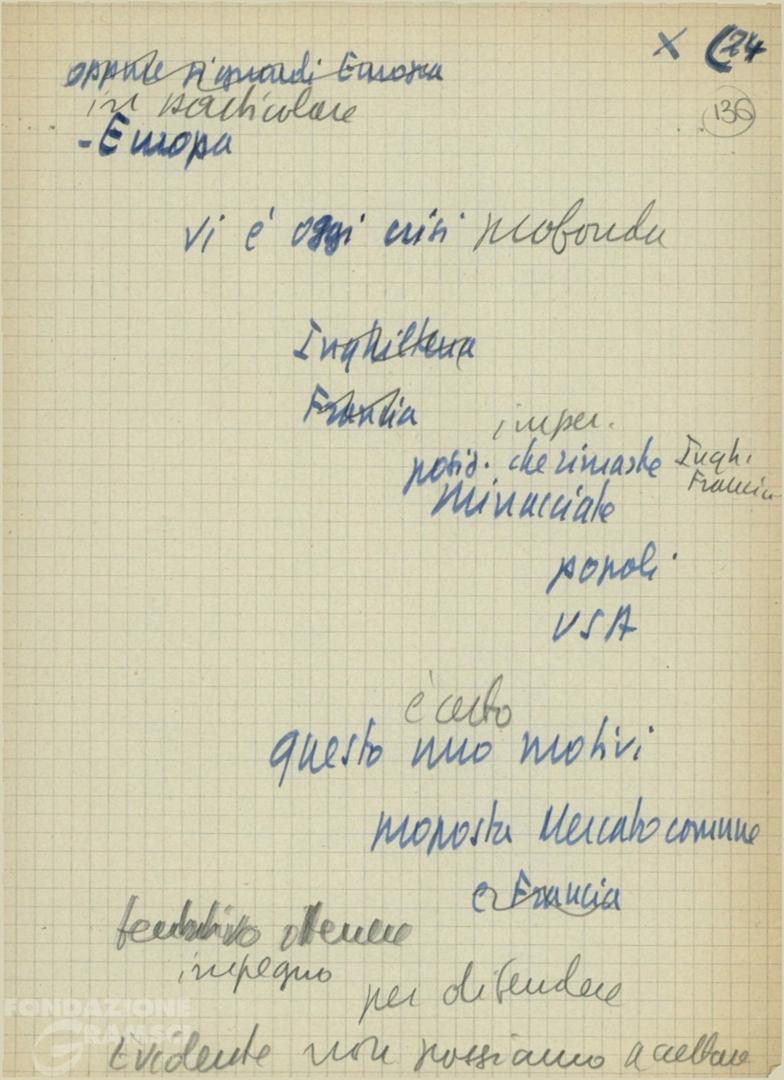 X (24
136
oppure riguardi Europa
in particolare
- Europa
vi è oggi crisi profonda
Inghilterra
Francia
imper.
posiz. che rimaste Inghi
Francia
minacciate
popoli
USA
è certo
questo uno motivi
proposta Mercato comune
e Francia
tentativo ottenere
impegno
per difendere
FONDAZIONE
GRAMSCI
Evidente non possiamo accettare